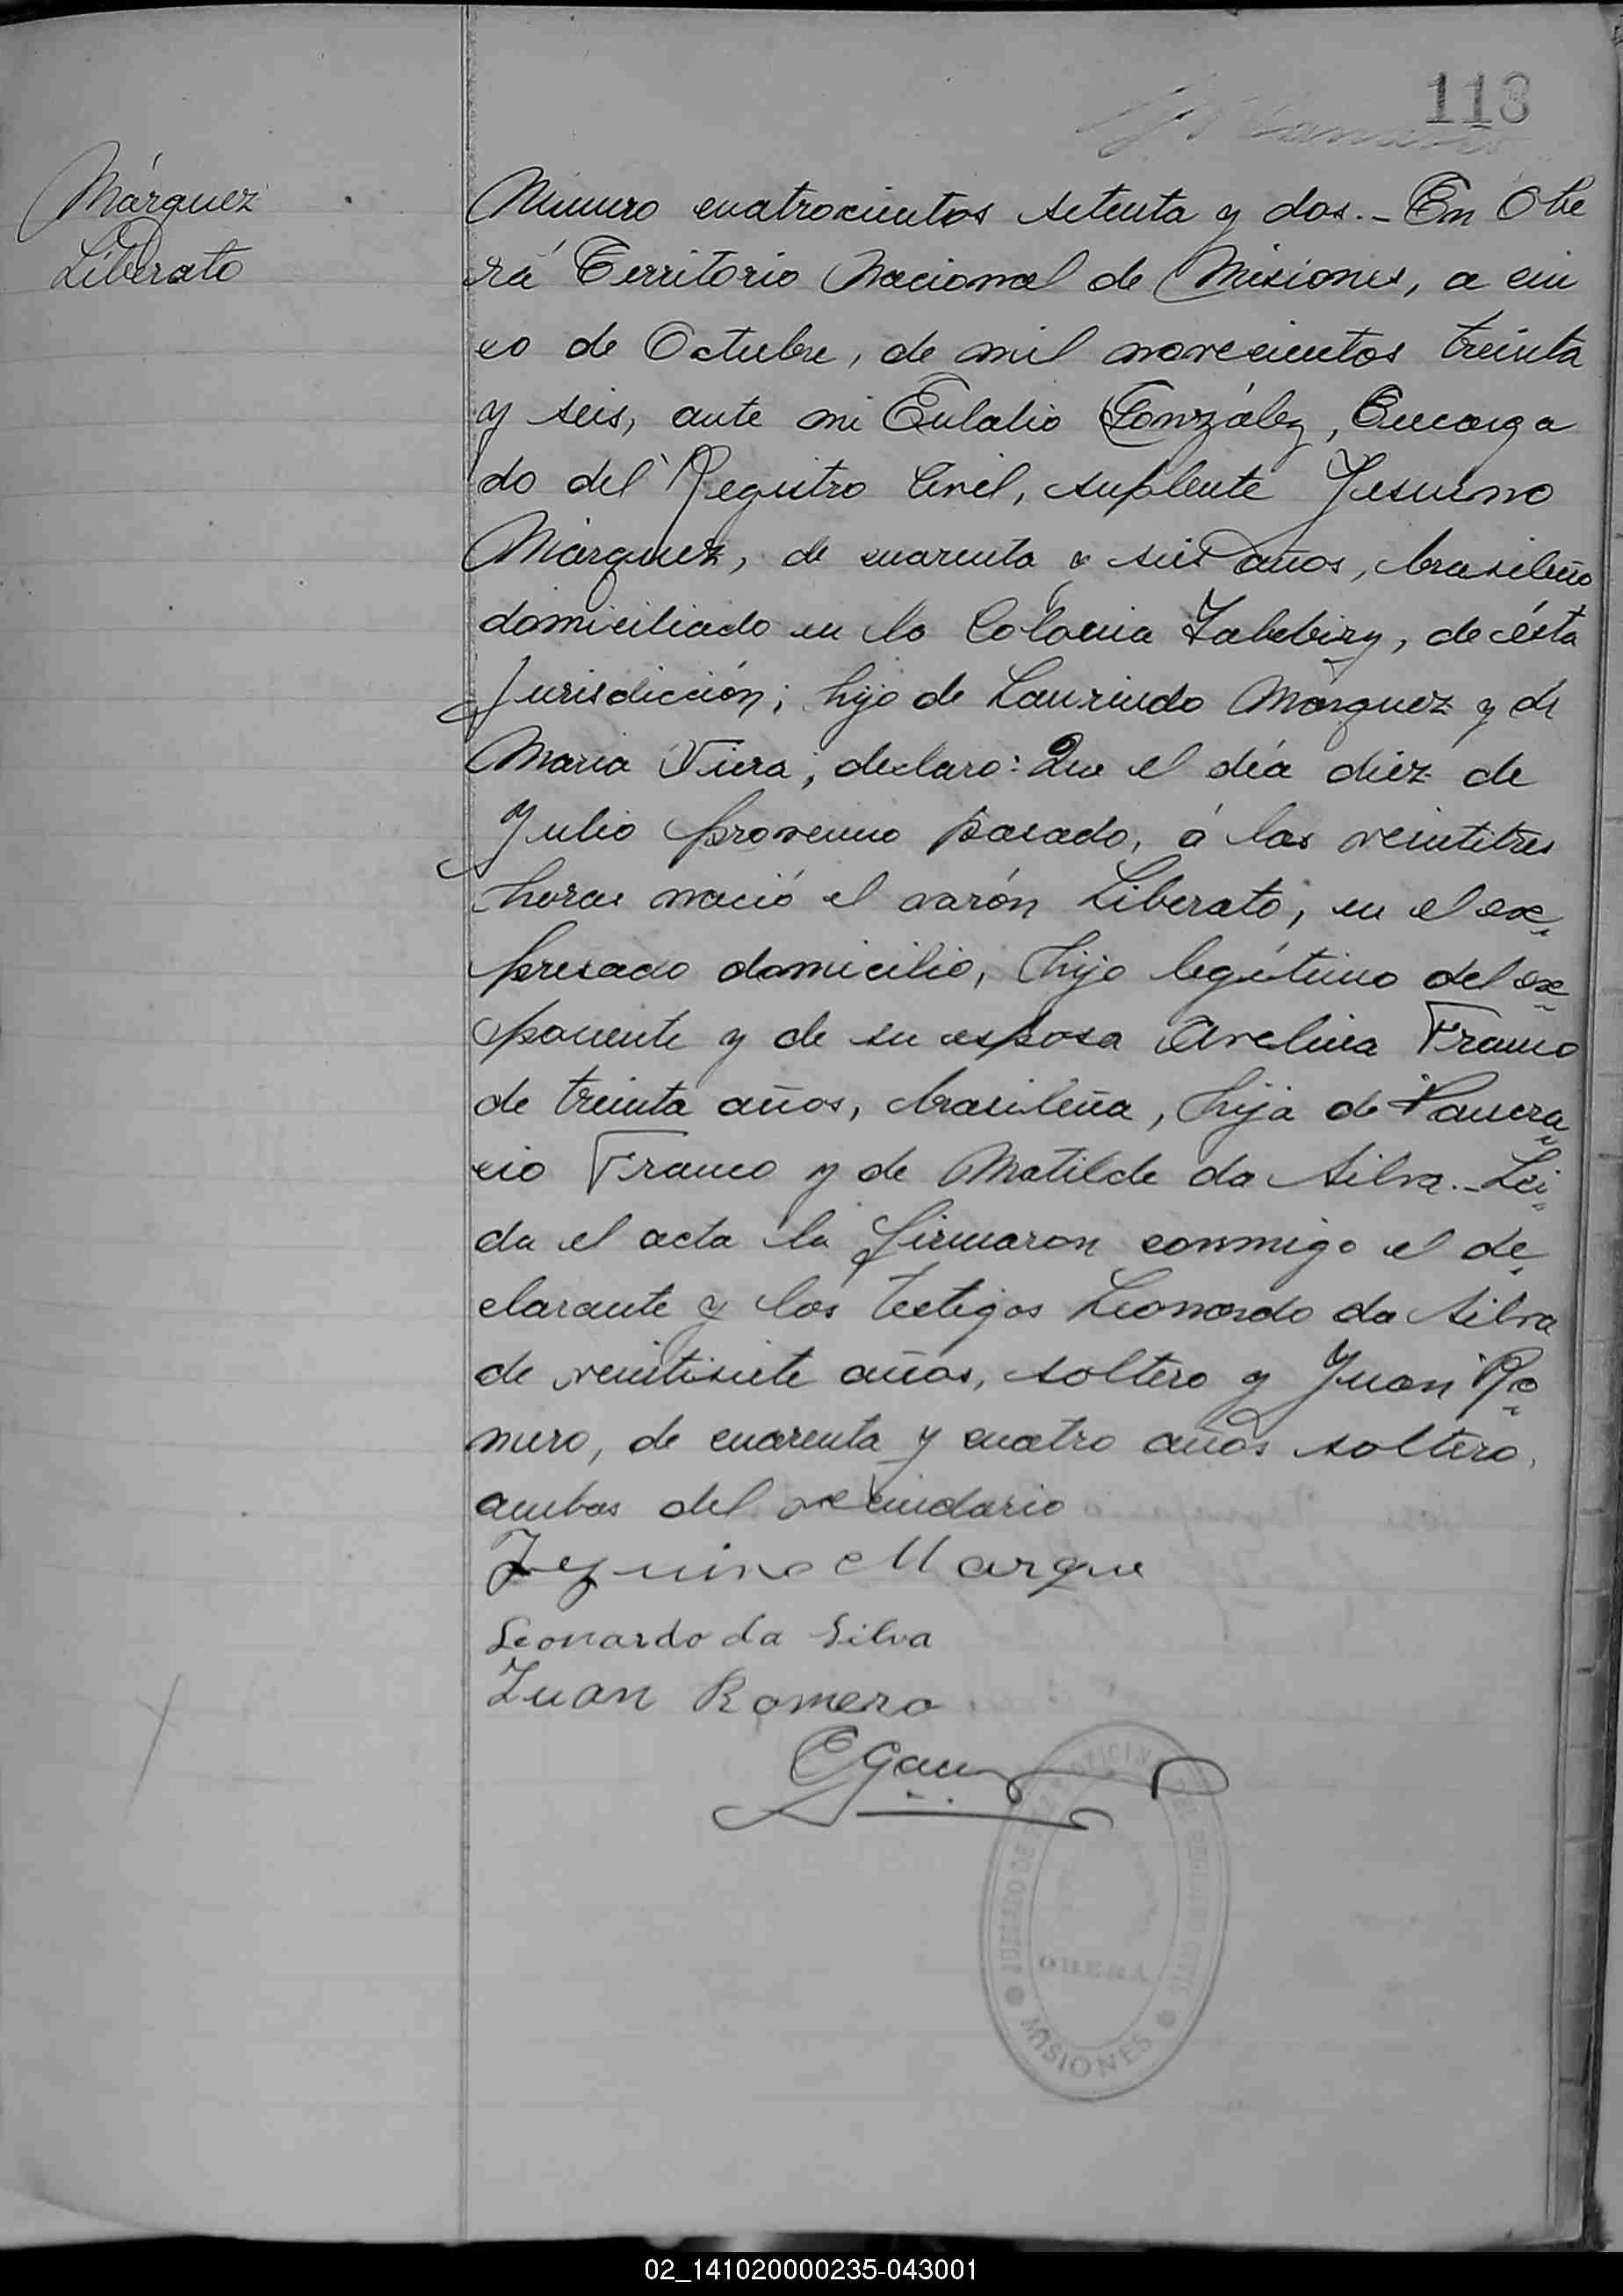 113
Márquez
Liberato
Número cuatrocientos setenta y dos.- En Obe
rá Territorio Nacional de Misiones, a cin
co de Octubre, de mil novecientos treinta
y seis, ante mi Eulalio González, Encarga
do del Registro Civil, suplente Jesuino
Márquez, de cuarenta y seis años, brasileño
domiciliado en la Colonia Yabebiry, de ésta
Jurisdicción; hijo de Laurindo Márquez y de
Maria Viera; declaro: Que el día diez de
Julio proximo pasado, á las veintitres
horas nació el varón Liberato, en el ex-
presado domicilio, hijo legítimo del ex-
ponente y de su esposa Avelina Franco
de treinta años, brasileña, hija de Pancra-
cio Franco y de Matilde da Silva.- Lei-
da el acta la firmaron conmigo el de-
clarante y los testigos Leonardo da Silva
de veintisiete años, soltero y Juan Ro-
mero, de cuarenta y cuatro años soltero,
ambos del vecindario
Jesuino Marque
Leonardo da Silva
Juan Romero
JUZGADO DE PAZ OFICINA DE REGISTRO CIVIL
OBERÁ
MISIONES
02_141020000235-043001